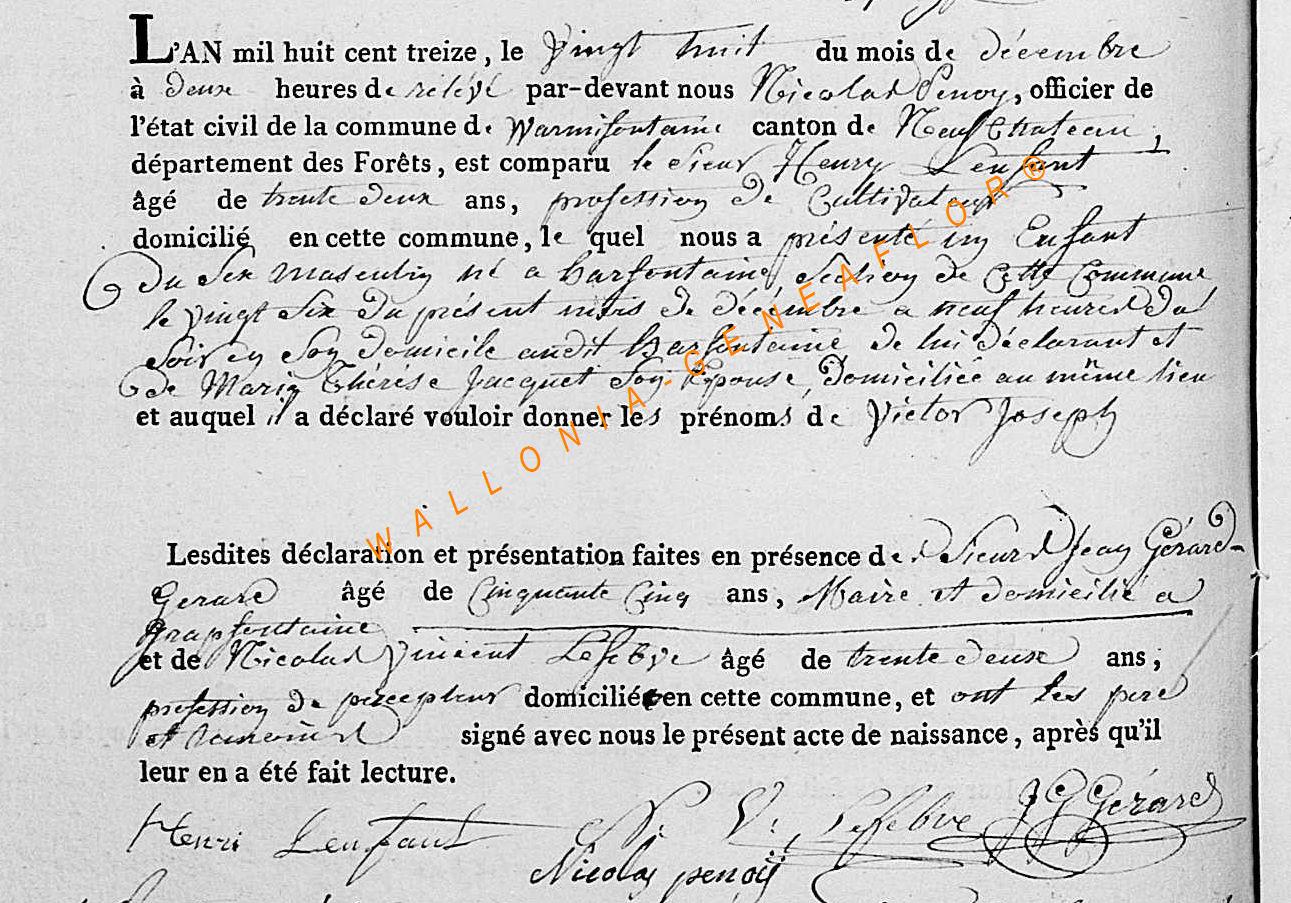 L'AN mil huit cent treize, le vingt huit du mois de décembre
à deux heures de rélévé par-devant nous Nicolas Penoy, officier de
l'état civil de la commune de Warmifontaine canton de Neufchateau,
département des Forêts, est comparu le sieur Henry Lenfant
âgé de trente deux ans, profession de Cultivateur
domicilié en cette commune, le quel nous a présenté un Enfant
du sex masculin né a harfontaine section de cette commune
le vingt six du présent mois de décembre a neuf heures du
soir en son domicile audit harfontaine de lui déclarant et
de Marie Thérése Jacquet son Epouse, domiciliée au même lieu
et auquel il a déclaré vouloir donner les prénoms de Victor Joseph
Lesdites déclaration et présentation faites en présence des Sieurs Jean Gérard-
Gerard âgé de Cinquante Cinq ans, Maire et domicilié a
Grapfontaine
et de Nicolas Vincent Lefebve âgé de trente deux ans,
profession de percepteur domicilié en cette commune, et ont les pere
et temoins signé avec nous le présent acte de naissance, après qu'il
leur en a été fait lecture.
Henri Lenfant N. V. Lefebve J G Gérard
Nicolas penoÿ
WALLONIA-GENEAFLOR®